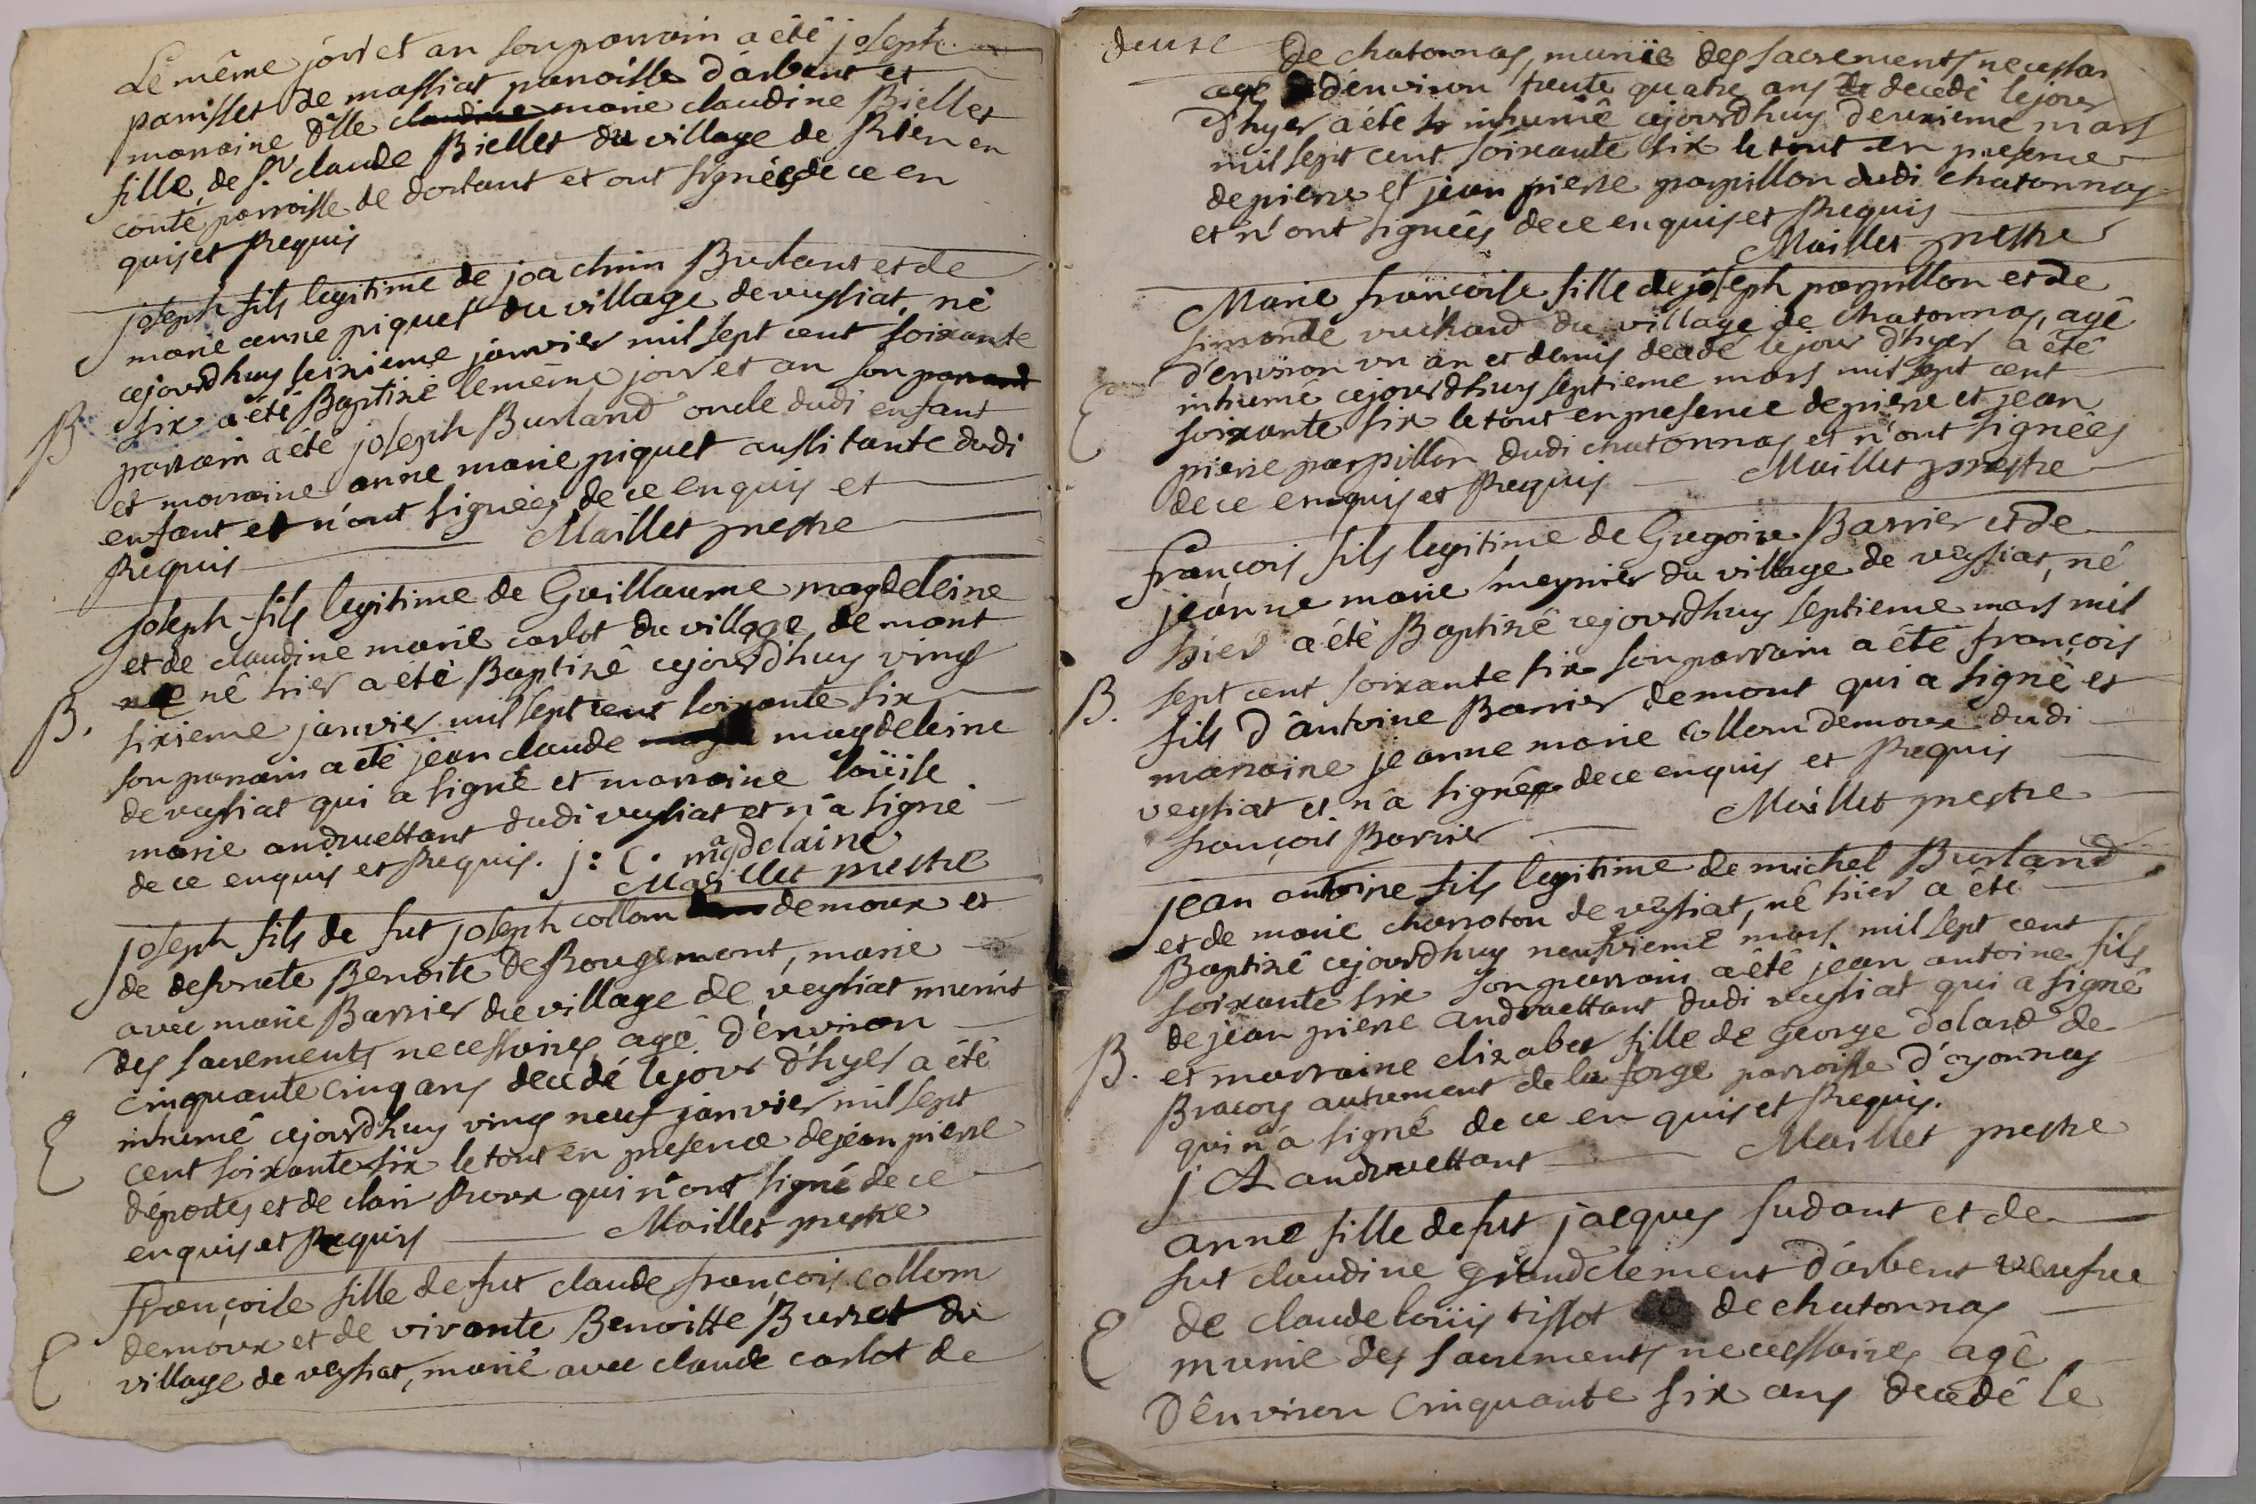 Le même jour et an son parrain a été joseph
panisset de massiat parroisse d'arbent et
marraine dlle claudine marie claudine Biellet
fille de sr claude Biellet du village de Rien en
conté parroisse de dortant et ont signées de ce en
quis et Requis
joseph fils legitime de joachim Burlant et de
marie anne piquet du village de veysiat, né
cejourdhuy seixieme janvier mil sept cent soixante
six a été Baptisé le même jour et an son parrand
B
parrain a été joseph Burland oncle dudi enfant
et marraine anne marie piquet aussi tante dudi
enfant et n'ont signées de ce enquis et
Requis Maillet prestre
joseph fils legitime de Guillaume magdeleine
et de claudine marie carlot du village de mont
né hier a été Baptisé cejourd'huy vingt
B.
sixieme janvier mil sept cent soixante six
son parrain a été jean claude magdeleine
de veysiat qui a signé et marraine loüise
marie andruettant dudi veysiat et n'a signé
de ce enquis et Requis. j: C. magdelaine
Maillet prestre
joseph fils de fut joseph collom demoux et
de defunte Benoite de Rougemont, marie
avec marie Barrier du village de veysiat munit
des sacrements necessaires agé d'environ
cinquante cinq ans decedé le jour d'hyer a été
inhumé cejourdhuy vingt neuf janvier mil sept
E
cent soixante six le tout en presence de jean pierre
déportes et de clair Roux qui n'ont signé de ce
enquis et Requis Maillet prestre
Françoise fille de fut claude françois collom
demoux et de vivante Benoitte Burret du
E
village de veysiat, marié avec claude carlot de
deuxe
De chatonnas, muniè des sacrements necessai
agé d'environ trente quatre ans decedé le jour
d'hyer a été inhumé cejourdhuy deuxieme mars
mil sept cent soixante six le tout en presence
de pierre et jean pierre parpillon dudi chatonnas
et n'ont signées de ce enquis et Requis
Maillet prestre
Marie françoise fille de joseph parpillon et de
simonde vuchard du village de chatonnas, agé
d'environ un an et demis decedé le jour d'hyer a été
E
inhumé cejourdhuy septieme mars mil sept cent
soixante six le tout en presence de pierre et jean
pierre parpillon dudi chatonnas et n'ont signées
de ce enquis et Requis Maillet prestre
françois fils legitime de Gregoire Barrier et de
jeanne marie meynier du village de veysiat, né
hier a été Baptisé cejourdhuy septieme mars mil
B.
sept cent soixante six son parrain a été françois
fils d'antoine Barrier de mont qui a signé et
marraine jeanne marie collom demoux dudi
veysiat et n'a signée de ce enquis et Requis
françois Barrier Maillet prestre
jean antoine fils legitime de michel Burland
et de marie charroton de veysiat, né hier a été
Baptisé cejourdhuy neufvieme mars mil sept cent
soixante six son parrain a été jean antoine fils
de jean pierre andruettant dudi veysiat qui a signé
B.
et marraine elizabet fille de george dolard de
Bracoy autrement de la forge parroisse d'oyonnas
qui n'a signé de ce en quis et Requis.
j A andruettant Maillet prestre
anne fille de fut jacques sudant et de
fut claudine grandclement d'arbent veufue
E
de claude loüis tissot de chatonnas
munie des sacrements necessaires agé
D'environ cinquante six ans decedé le